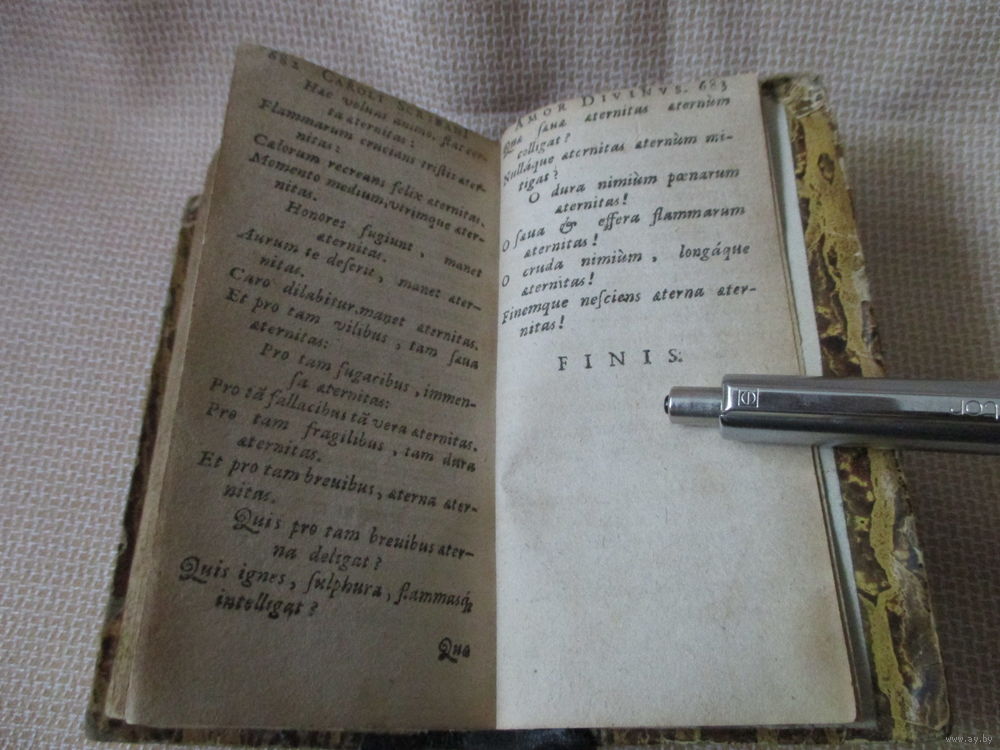 682 CAROLI
Hæc voluat animo, stat
ta æternitas:
Flammarum crucians tristis æter-
nitas:
Cælorum recreans felix æternitas.
Momento medium, vtrimque æter-
nitas.
Honores fugiunt, manet
æternitas.
Aurum te deserit, manet æter-
nitas.
Caro dilabitur, manet æternitas.
Et pro tam vilibus, tam sæua
æternitas:
Pro tam fugacibus, immen-
sa æternitas:
Pro tã fallacibus tã vera æternitas.
Pro tam fragilibus, tam dura
æternitas.
Et pro tam breuibus, æterna æter-
nitas.
Quis pro tam breuibus æter-
na deligat?
Quis ignes, sulphura, flammasq́;
intelligat?
Quæ
AMOR DIVINVS. 683
Quæ sæua æternitas æternùm
colligat?
Nulláque æternitas æternùm mi-
tigat?
O dura nimiùm pœnarum
æternitas!
O sæua & effera flammarum
æternitas!
O cruda nimiùm, longáque
æternitas!
Finemque nesciens æterna æter-
nitas!
FINIS.
www.ay.by